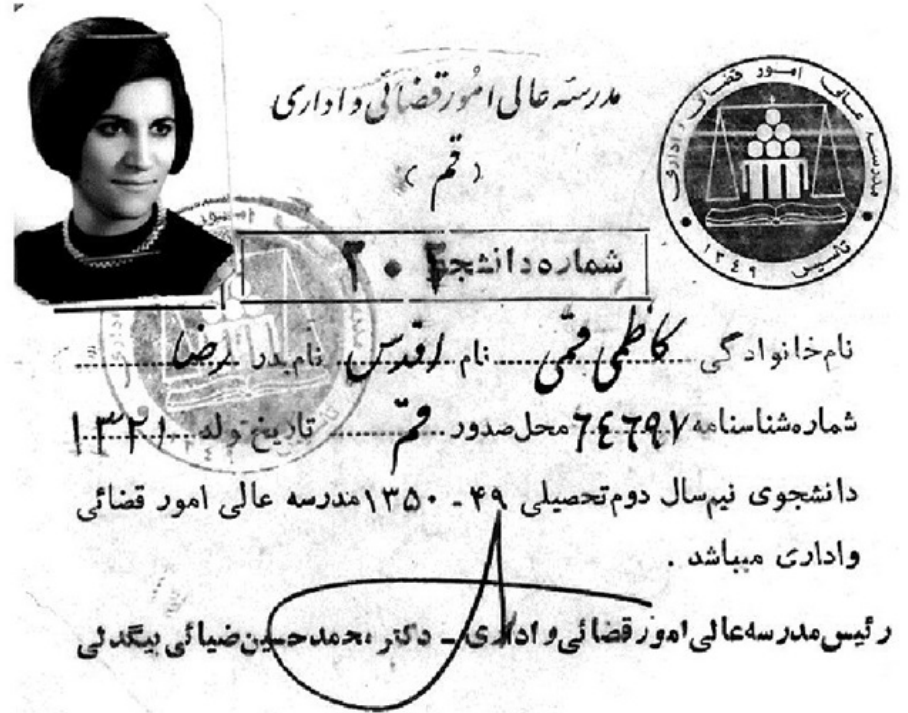 مدرسه عالی امور قضائی و اداری
تأسیس ۱۳٤۹
مدرسه عالی امور قضائی و اداری
( قم )
شماره دانشجو ۲۰۲
نام خانوادگی کاظمی قمی نام اقدس نام پدر رضا
شماره شناسنامه ٦٤٦٩٧ محل صدور قم تاریخ تولد ۱۳۲۱
دانشجوی نیم‌سال دوم تحصیلی ۴۹ - ۱۳۵۰ مدرسه عالی امور قضائی
واداری میباشد .
رئیس مدرسه عالی امور قضائی و اداری - دکتر محمد حسین ضیائی بیگدلی